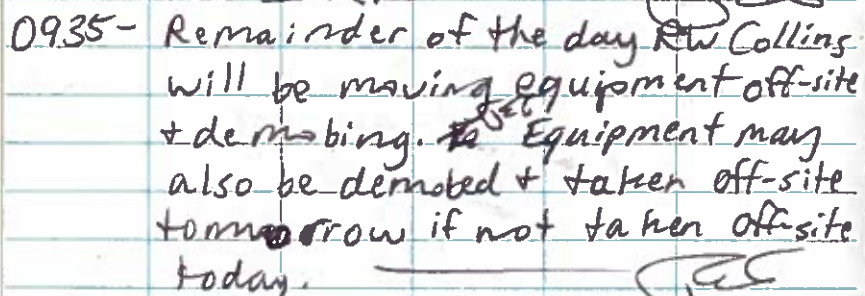 0935- Remainder of the day RW Collins
will be moving equipment off-site
+ demobing. Equipment may
also be demobed + taken off-site
tommorrow if not taken off-site
today.